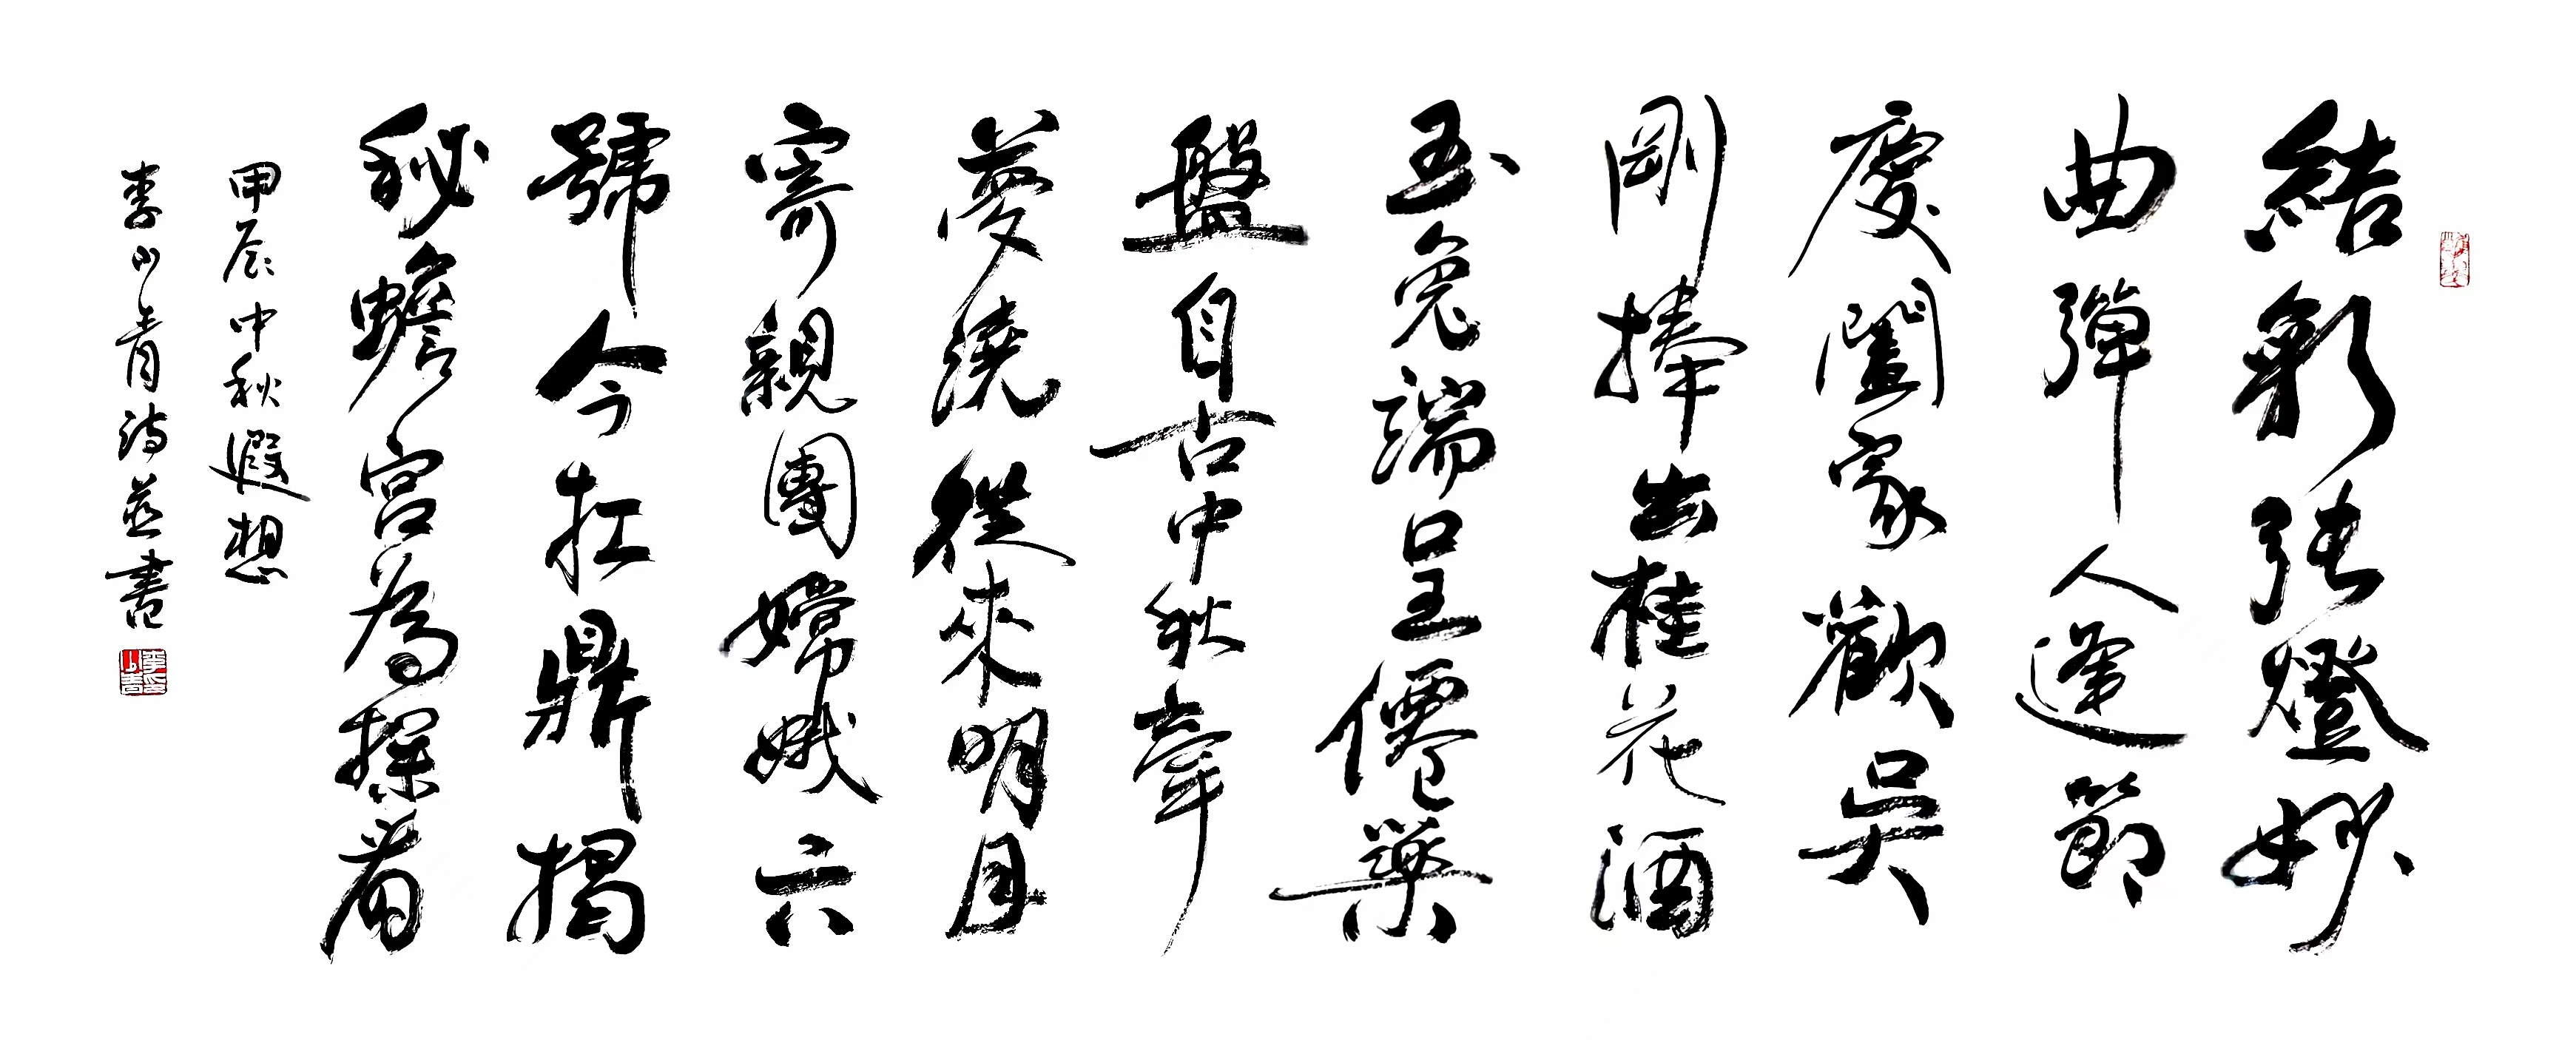 結彩張燈妙
曲彈人逢節
慶闔家歡吳
剛捧出桂花酒
玉兔端呈僊藥
盤自古中秋牽
夢繞從來明月
寄親團嫦娥六
號今扛鼎揭
秘蟾宮為探看
甲辰中秋遐想
李山青詩并書